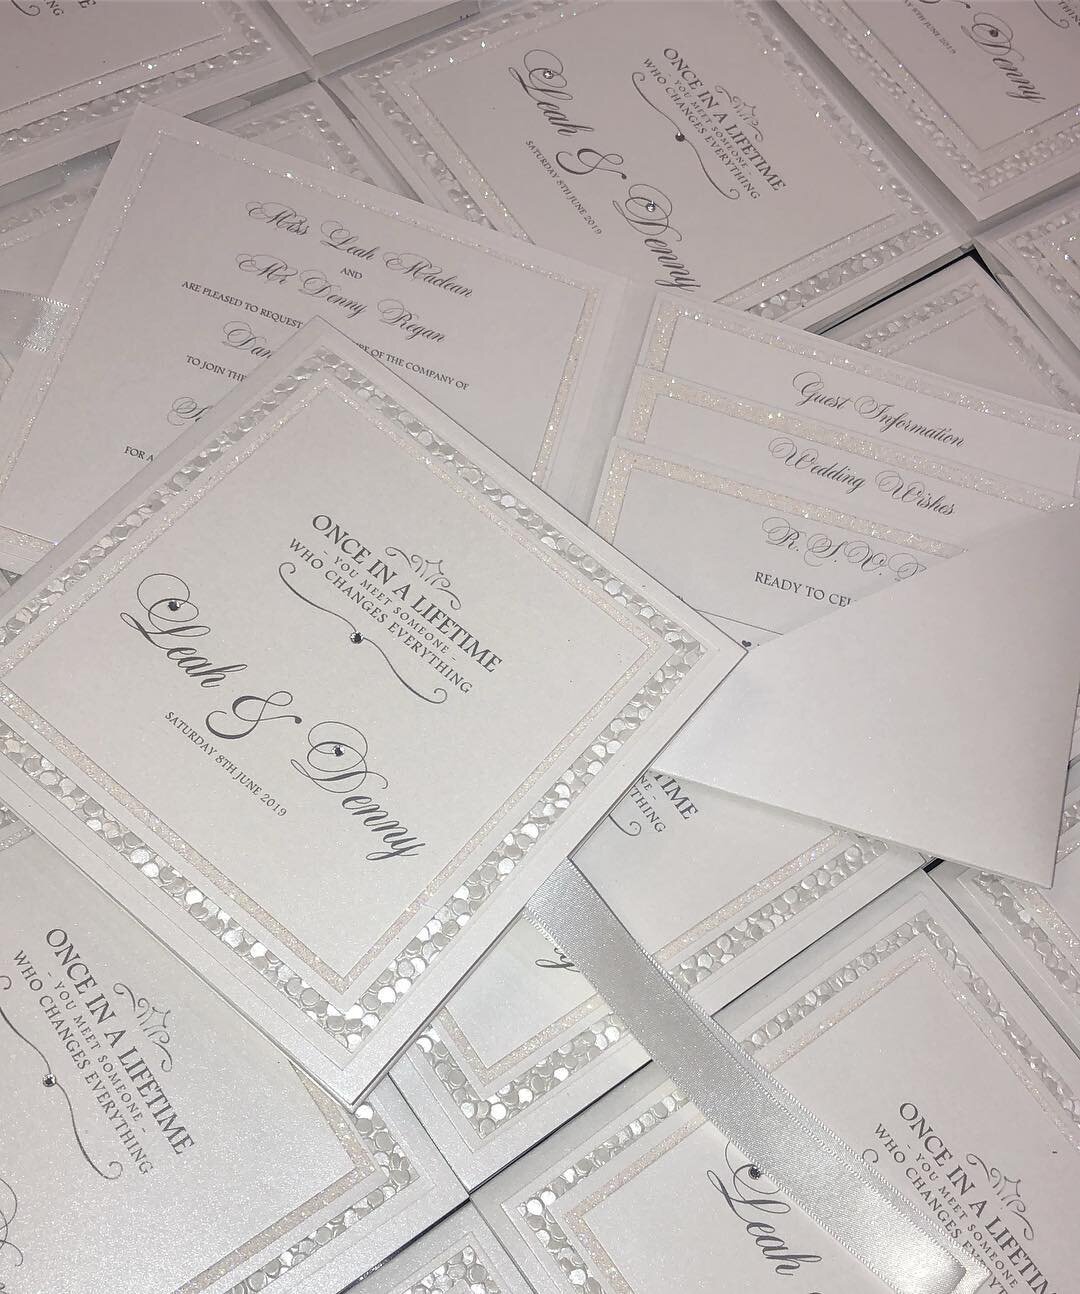 ONCE IN A LIFETIME
- YOU MEET SOMEONE -
WHO CHANGES EVERYTHING
Leah & Denny
SATURDAY 8TH JUNE 2019
Denny
ONCE IN A LIFETIME
- YOU MEET SOMEONE -
WHO CHANGES EVERYTHING
Leah & Denny
SATURDAY 8TH JUNE 2019
Miss Leah Maclean
AND
Mr Denny Regan
ARE PLEASED TO REQUEST
OF THE COMPANY OF
TO JOIN
FOR A
Guest Information
Wedding Wishes
R.S.V.P
READY TO
ONCE IN A LIFETIME
- YOU MEET SOMEONE -
WHO CHANGES EVERYTHING
ONCE IN A LIFETIME
- YOU MEET SOMEONE -
WHO CHANGES EVERYTHING
Leah